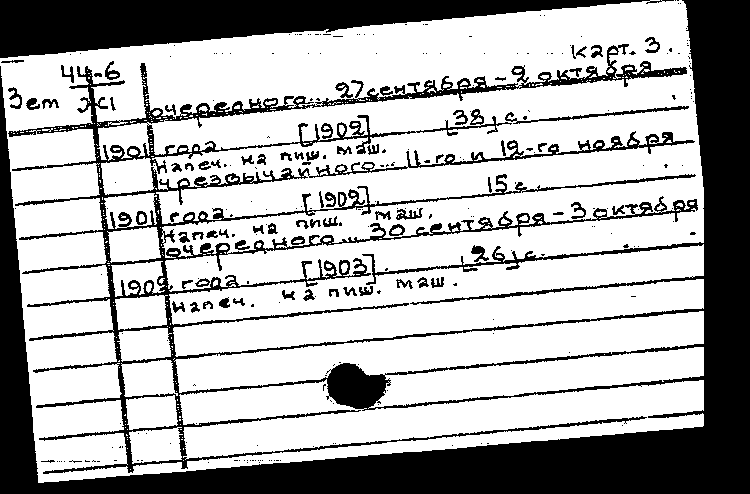 44-6
карт. 3.
Зет Ж1
очередного... 27 сентября - 2 октября
1901 года. [1902] [38] с.
Напеч. на пиш. маш.
чрезвычайного... 11-го и 12-го ноября
1901 года. [1902] 15 с.
Напеч. на пиш. маш.
очередного... 30 сентября - 3 октября
1902 года. [1903]. [26] с.
Напеч. на пиш. маш.